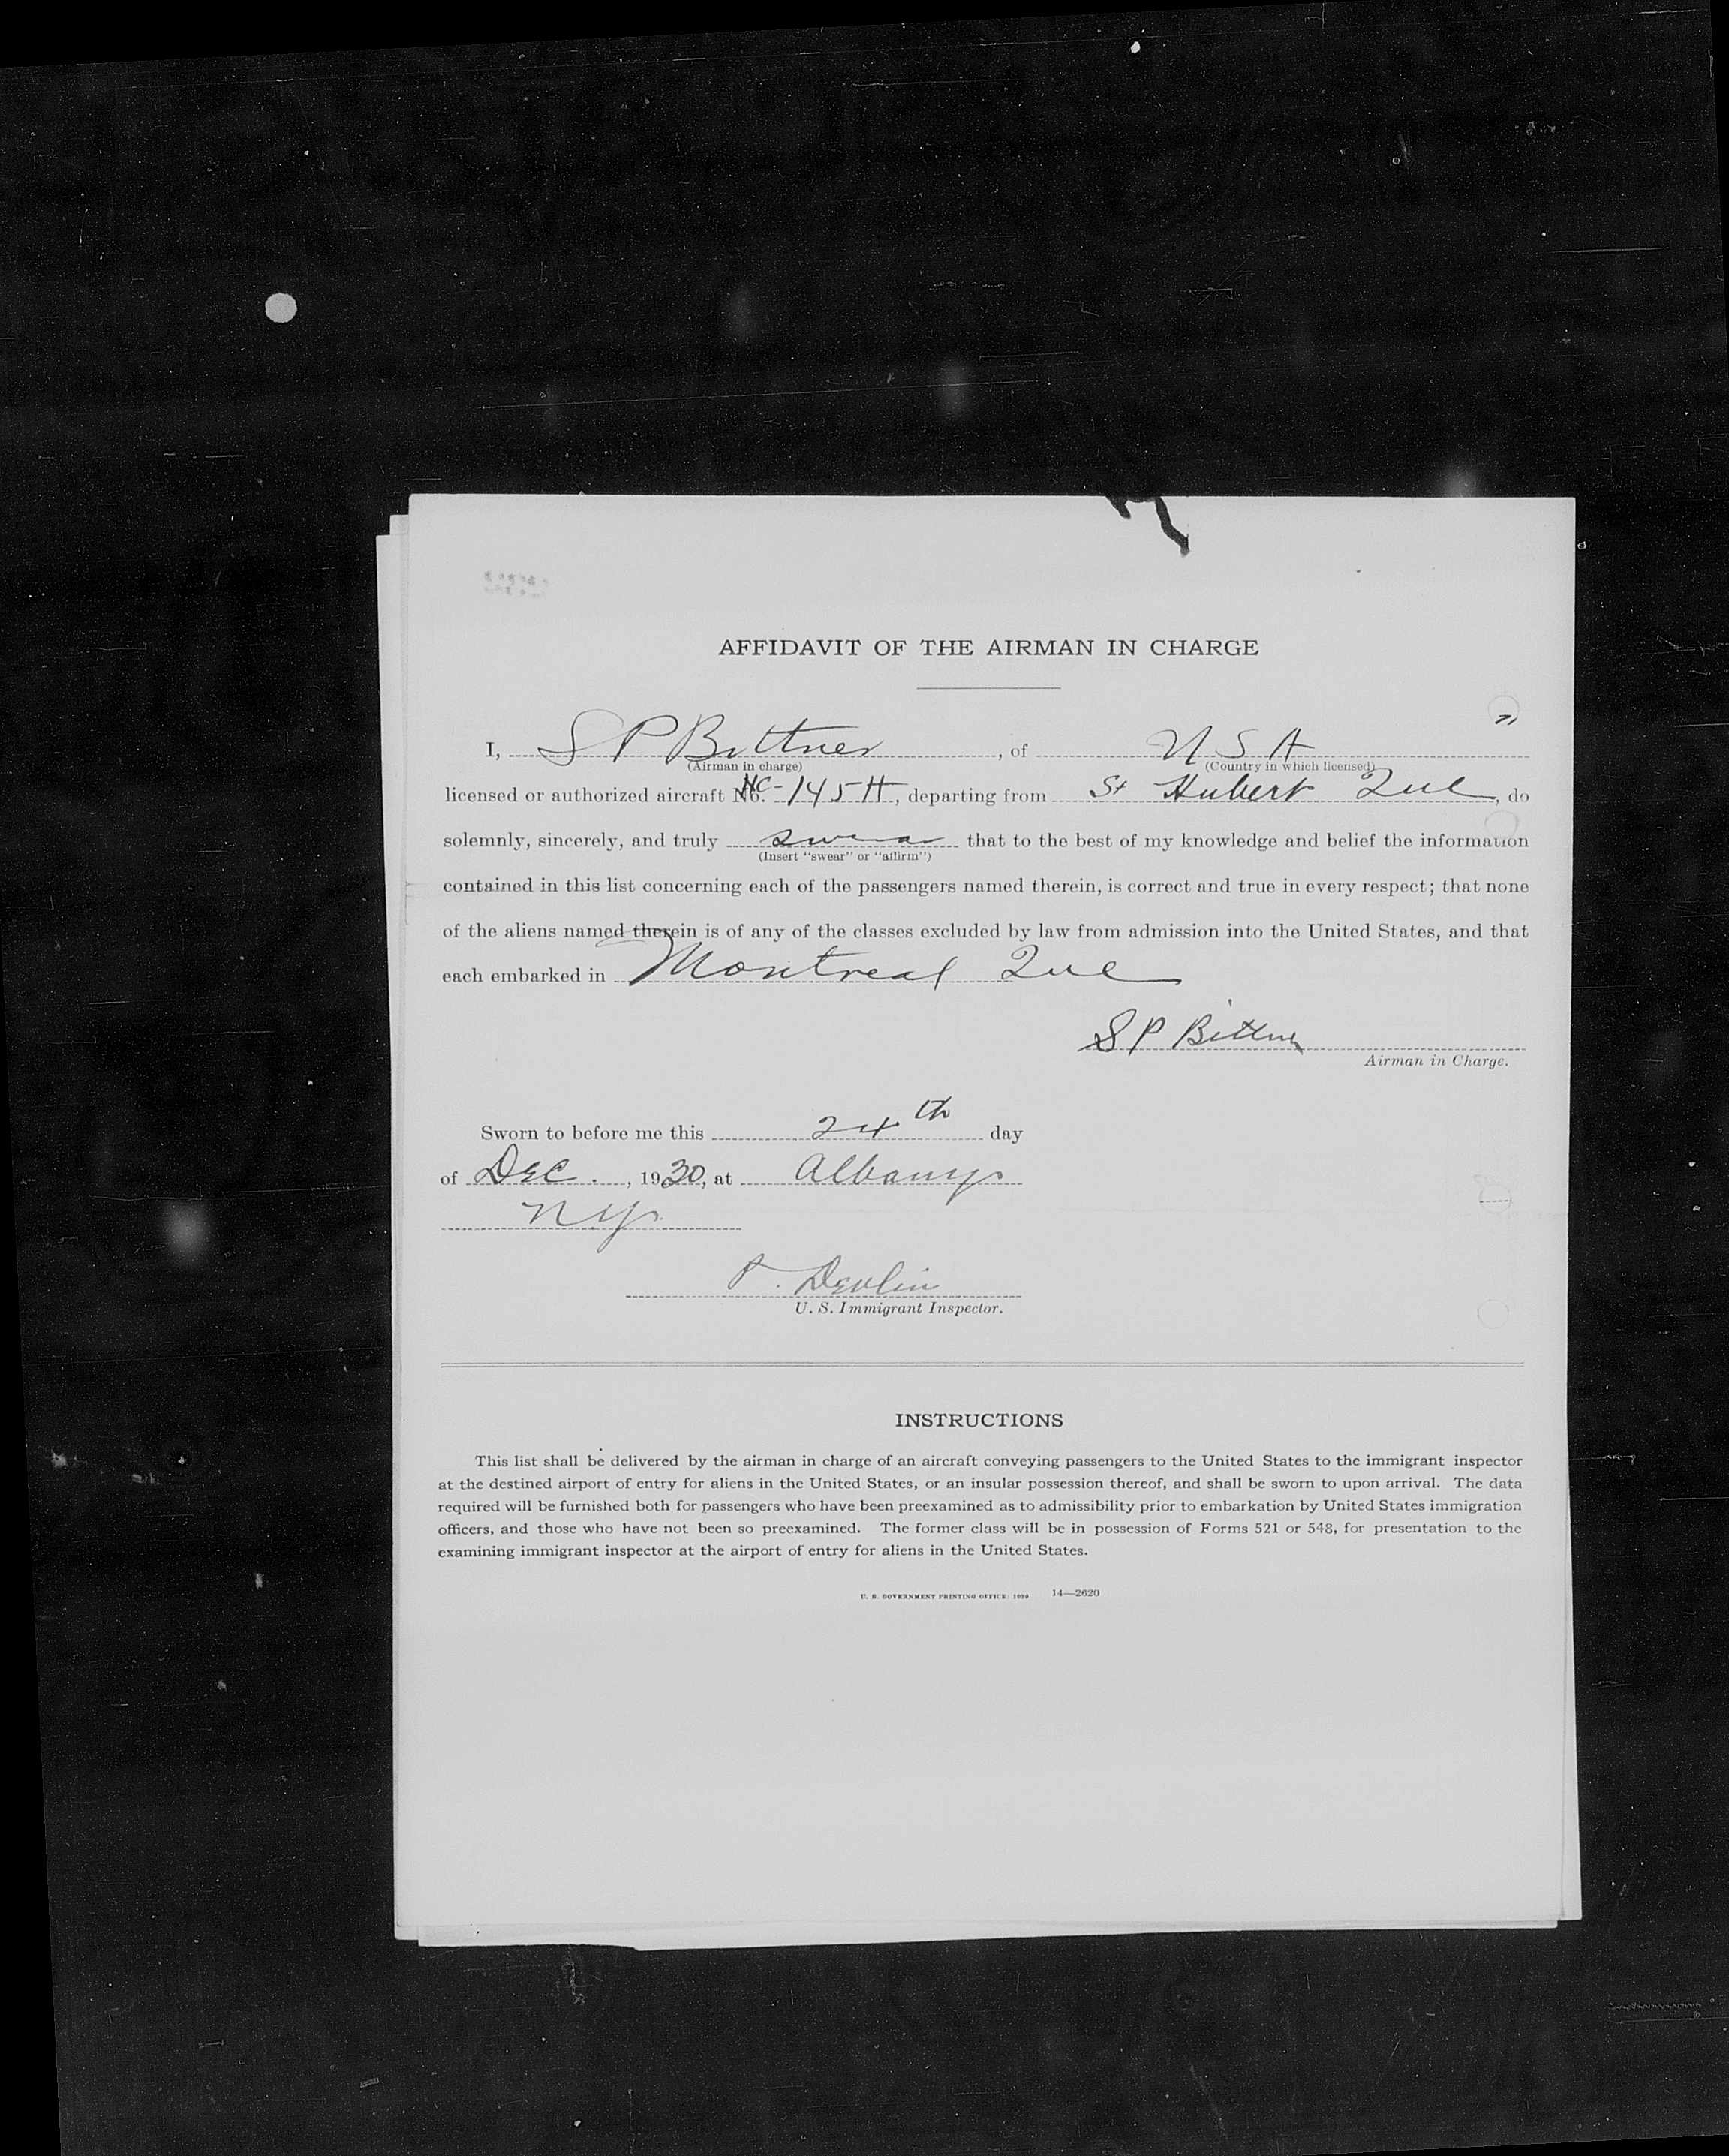 AFFIDAVIT OF THE AIRMAN IN CHARGE
I, S P Bittner, of U S A
(Airman in charge) (Country in which licensed)
licensed or authorized aircraft No. NC-145H, departing from St Hubert Que, do
solemnly, sincerely, and truly swear that to the best of my knowledge and belief the information
(Insert "swear" or "affirm")
contained in this list concerning each of the passengers named therein, is correct and true in every respect; that none
of the aliens named therein is of any of the classes excluded by law from admission into the United States, and that
each embarked in Montreal Que
S P Bittner
Airman in Charge.
Sworn to before me this 24th day
of Dec., 1930, at Albany
N.Y.
P. Devlin
U. S. Immigrant Inspector.
INSTRUCTIONS
This list shall be delivered by the airman in charge of an aircraft conveying passengers to the United States to the immigrant inspector
at the destined airport of entry for aliens in the United States, or an insular possession thereof, and shall be sworn to upon arrival. The data
required will be furnished both for passengers who have been preexamined as to admissibility prior to embarkation by United States immigration
officers, and those who have not been so preexamined. The former class will be in possession of Forms 521 or 548, for presentation to the
examining immigrant inspector at the airport of entry for aliens in the United States.
U. S. GOVERNMENT PRINTING OFFICE: 1929 14—2620